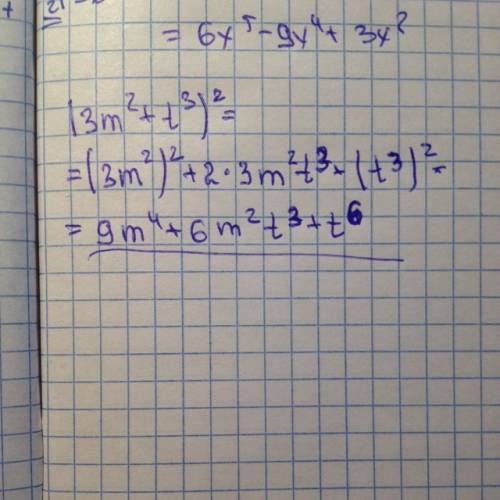 = 6x⁵ - 9x⁴ + 3x²
(3m² + t³)² =
= (3m²)² + 2 · 3m²t³ + (t³)² =
= 9m⁴ + 6m²t³ + t⁶